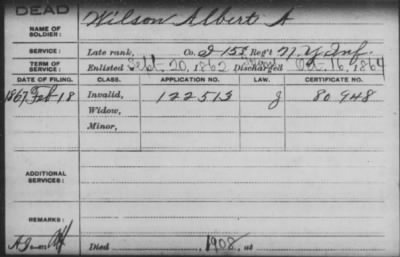 DEAD
NAME OF SOLDIER: Wilson Albert A
SERVICE: Late rank, Co. I 153 Reg't N.Y. Inf.
TERM OF SERVICE: Enlisted Sept. 20, 1862 Discharged Oct. 16, 1864
DATE OF FILING. CLASS. APPLICATION NO. LAW. CERTIFICATE NO.
1867 Feb 18 Invalid, 122513 g 80948
Widow,
Minor,
ADDITIONAL SERVICES:
REMARKS:
Died 1908, at